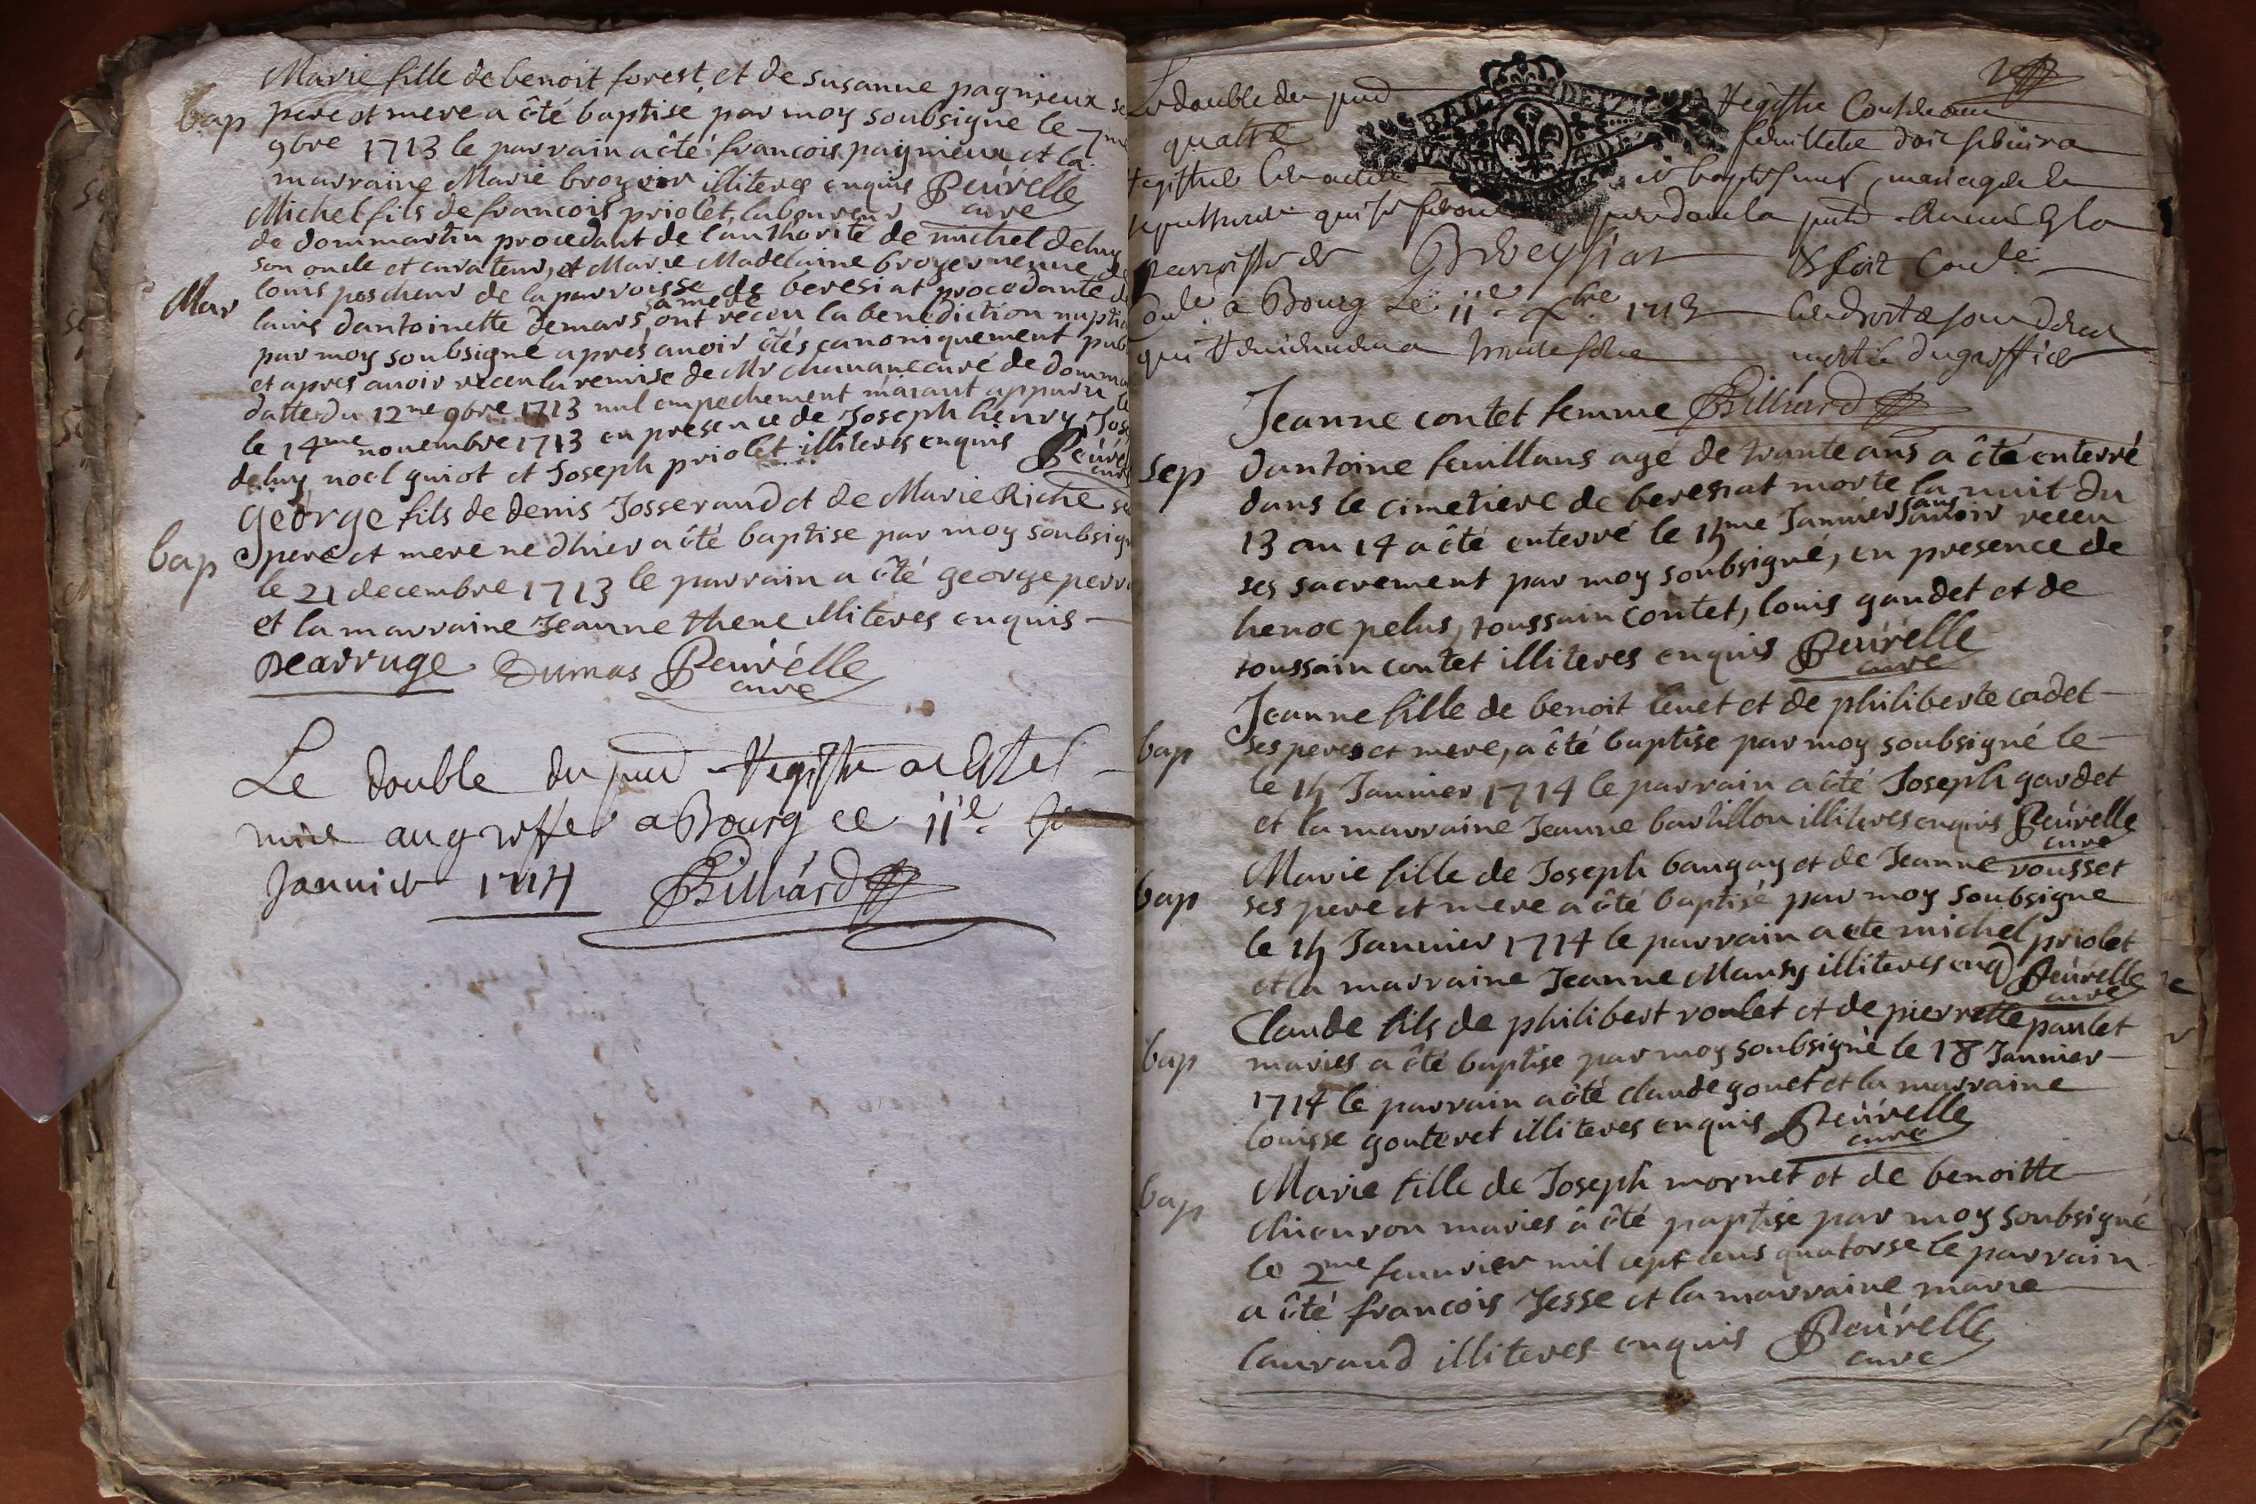 Marie fille de benoit forest, et de susanne pagnieux se
bap pere et mere a êté baptise par moy soubsigne le 7me
9bre 1713 le parrain a êté francois pagnieux et la
marraine Marie broyer illiteres enquis Peúrelle
cure
Michel fils de francois priolet, laboureur
de dommartin procedant de lauthorité de michel deluy
son oncle et curateur, et Marie Madelaine broyer veuve de
Mar louis pescheur de la parroisse de beresiat procedante de
lauis dantoinette demars sa mere ont receu la benediction nuptia
par moy soubsigne apres avoir êtés canoniquement pub
et apres avoir receu la remise de Mr chavane curé de domma
datte du 12me 9bre 1713 nul empechement maiant apparu
le 14me novembre 1713 en presence de Joseph henry, Jos
deluy noel guiot et Joseph priolet illiteres enquis Peúre
cure
George fils de denis Josserand et de Marie Riche se
bap pere et mere ne dhier a êté baptise par moy soubsign
le 21 decembre 1713 le parrain a êté george perr
et la marraine Jeanne thene illiteres enquis
Dearruge Dumas Peúrelle
cure
Le double du pnt Registre a Esté
mis au greffe a Bourg ce 11e
Janvier 1714 Billiard
Le double du pnt Registre Contenant
quatre feuillets doit servir a
registrer les actes de baptesmes, mariages et
sepultures qui se feront pendant la pnte année En la
parroisse de Bereysiat Et soit Cotté
a Bourg Le 11e Xbre 1713 les droits sont deus
moitié du greffier
Jeanne contet femme Billiard
sep dantoine feuillans age de trante ans a êté enterré
dans le cimetiere de beresiat morte la nuit du
13 au 14 a êté enterré le 15me Janvier sans avoir receu
ses sacrement par moy soubsigné, en presence de
henoc pelus, toussain contet, louis gaudet et de
toussain contet illiteres enquis Peúrelle
cure
Jeanne fille de benoit levet et de philiberte cadet
bap ses peres et mere, a êté baptise par moy soubsigné le
le 15 Janvier 1714 le parrain a êté Joseph gardet
et la marraine Jeanne bartillon illiteres enquis Peúrelle
cure
Marie fille de Joseph baugay et de Jeanne rousset
bap ses pere et mere a êté baptisé par moy soubsigne
le 15 Janvier 1714 le parrain a ete michel priolet
et la marraine Jeanne Mansy illiteres enq Peúrelle
cure
Claude fils de philibert roulet et de pierrette paulet
bap maries a êté baptise par moy soubsigné le 18 Janvier
1714 le parrain a êté claude gonet et la marraine
louisse gouteret illiteres enquis Peúrelle
cure
bap Marie fille de Joseph mornet et de benoitte
chievron maries â êté paptise par moy soubsigné
le 2me feuvrier mil sept cens quatorse le parrain
a êté francois Jesse et la marraine marie
lauraud illiteres enquis Peúrelle
cure